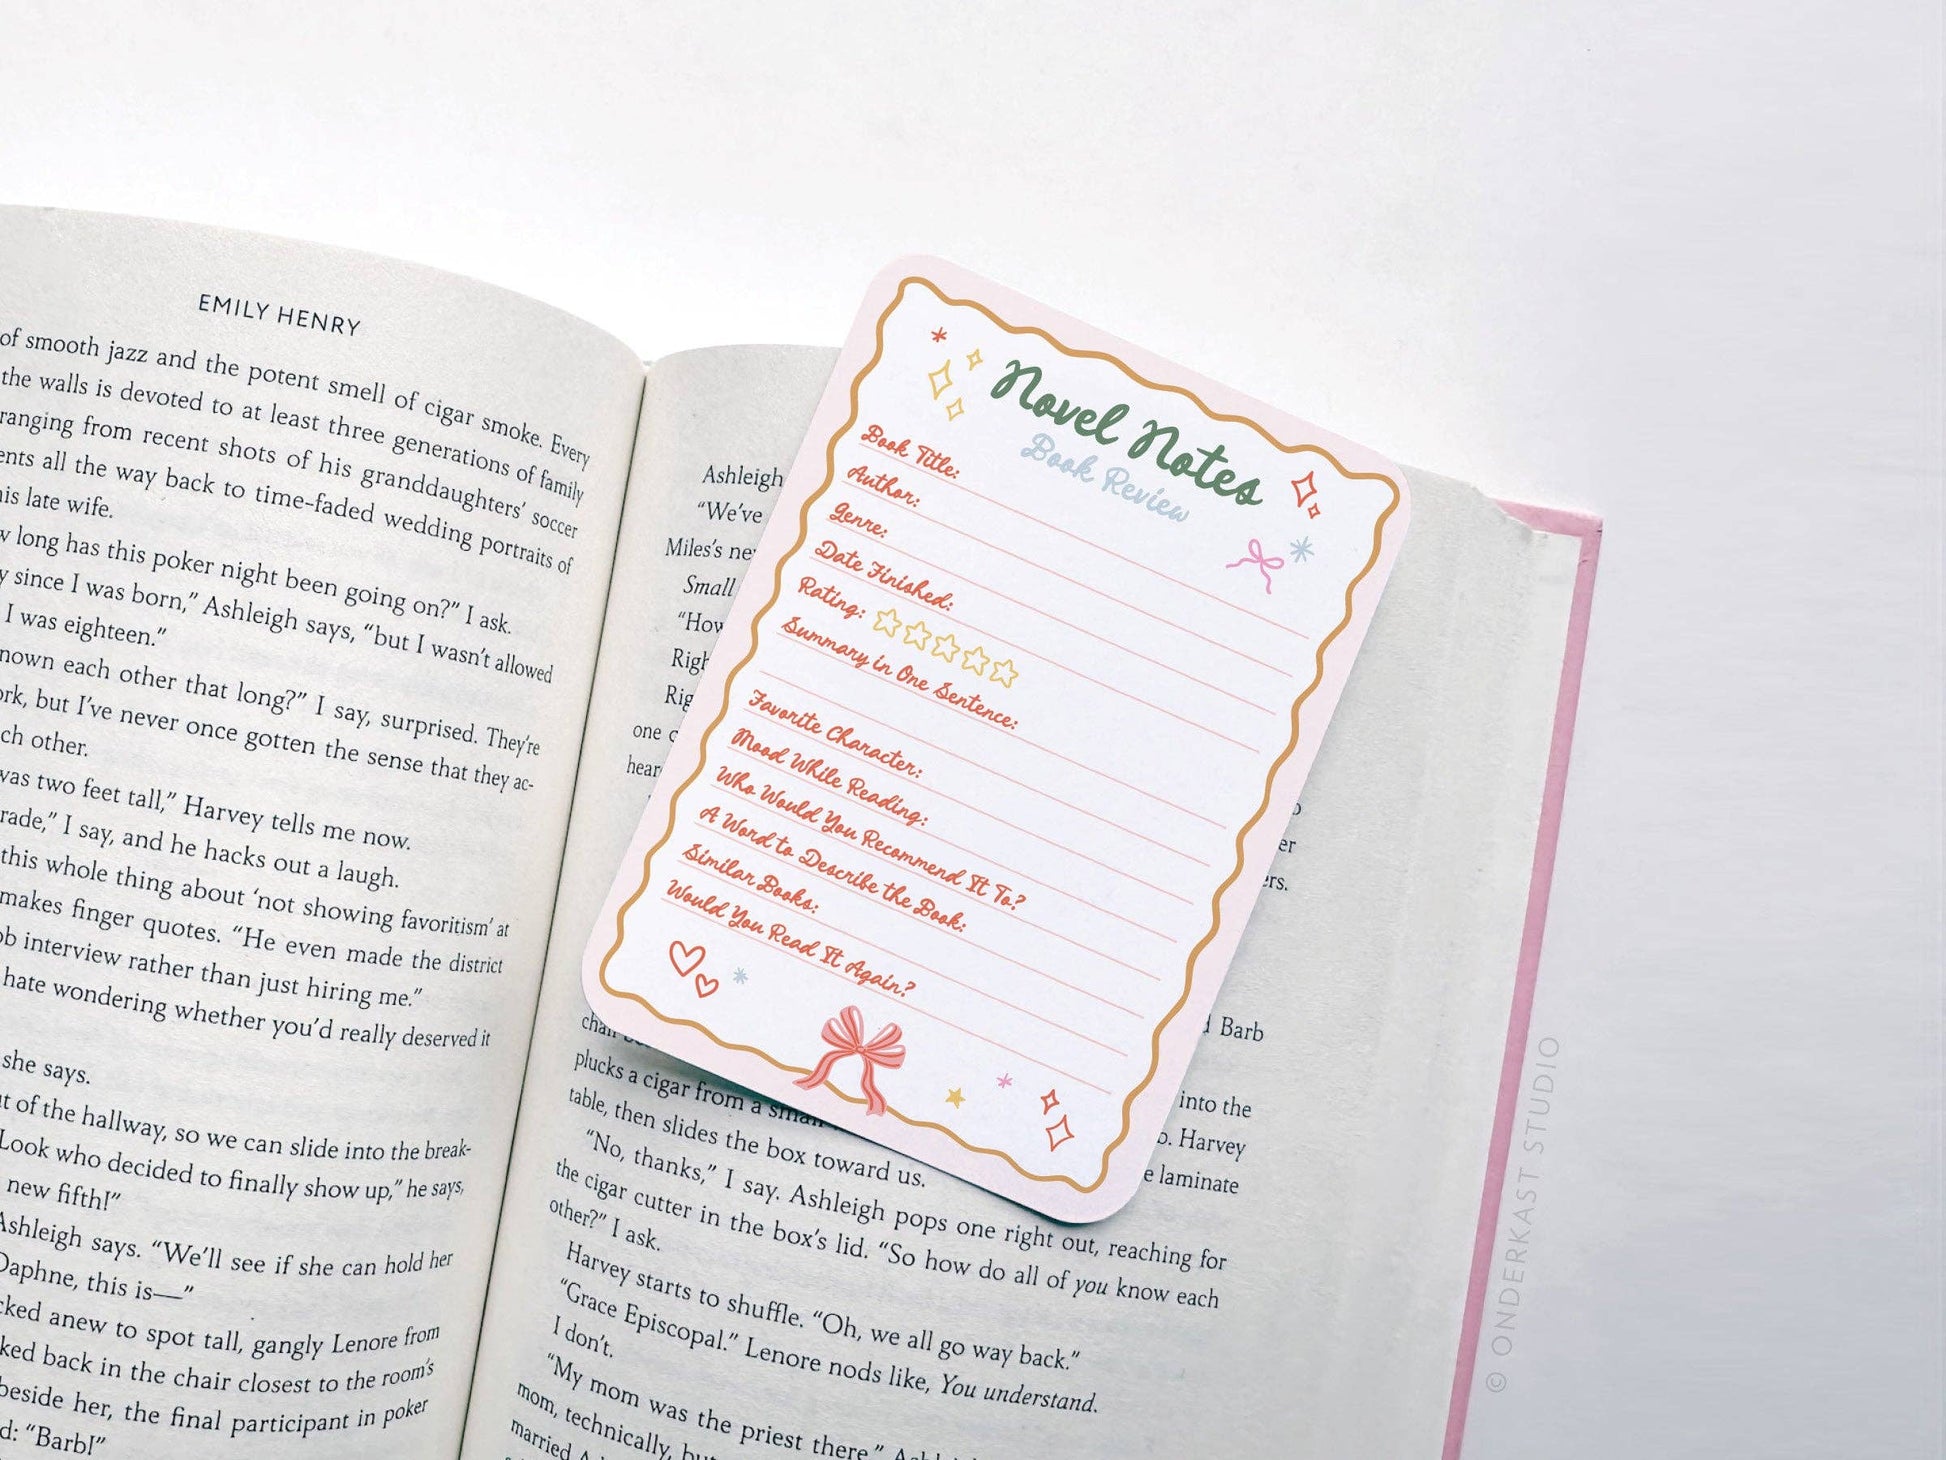 EMILY HENRY
of smooth jazz and the potent smell of cigar smoke. Every
the walls is devoted to at least three generations of family
ranging from recent shots of his granddaughters’ soccer
ents all the way back to time-faded wedding portraits of
his late wife.
w long has this poker night been going on?” I ask.
y since I was born,” Ashleigh says, “but I wasn’t allowed
I was eighteen.”
nown each other that long?” I say, surprised. They’re
ork, but I’ve never once gotten the sense that they ac-
ch other.
was two feet tall,” Harvey tells me now.
rade,” I say, and he hacks out a laugh.
this whole thing about ‘not showing favoritism’ at
makes finger quotes. “He even made the district
ob interview rather than just hiring me.”
hate wondering whether you’d really deserved it
she says.
ut of the hallway, so we can slide into the break-
Look who decided to finally show up,” he says,
new fifth!”
Ashleigh says. “We’ll see if she can hold her
Daphne, this is—”
cked anew to spot tall, gangly Lenore from
ked back in the chair closest to the room’s
beside her, the final participant in poker
d: “Barb!”
Ashleigh
“We’ve
Miles’s new
Small
“How
Righ
Rig
one c
hear
Novel Notes
Book Review
Book Title:
Author:
Genre:
Date Finished:
Rating:
Summary in One Sentence:
Favorite Character:
Mood While Reading:
Who Would You Recommend It To?
A Word to Describe the Book:
Similar Books:
Would You Read It Again?
er
ers.
Barb
plucks a cigar from a small
into the
table, then slides the box toward us.
o. Harvey
“No, thanks,” I say. Ashleigh pops one right out, reaching for
e laminate
the cigar cutter in the box’s lid. “So how do all of you know each
other?” I ask.
Harvey starts to shuffle. “Oh, we all go way back.”
“Grace Episcopal.” Lenore nods like, You understand.
I don’t.
“My mom was the priest there,”
mom, technically, but
married
© ONDERKAST STUDIO